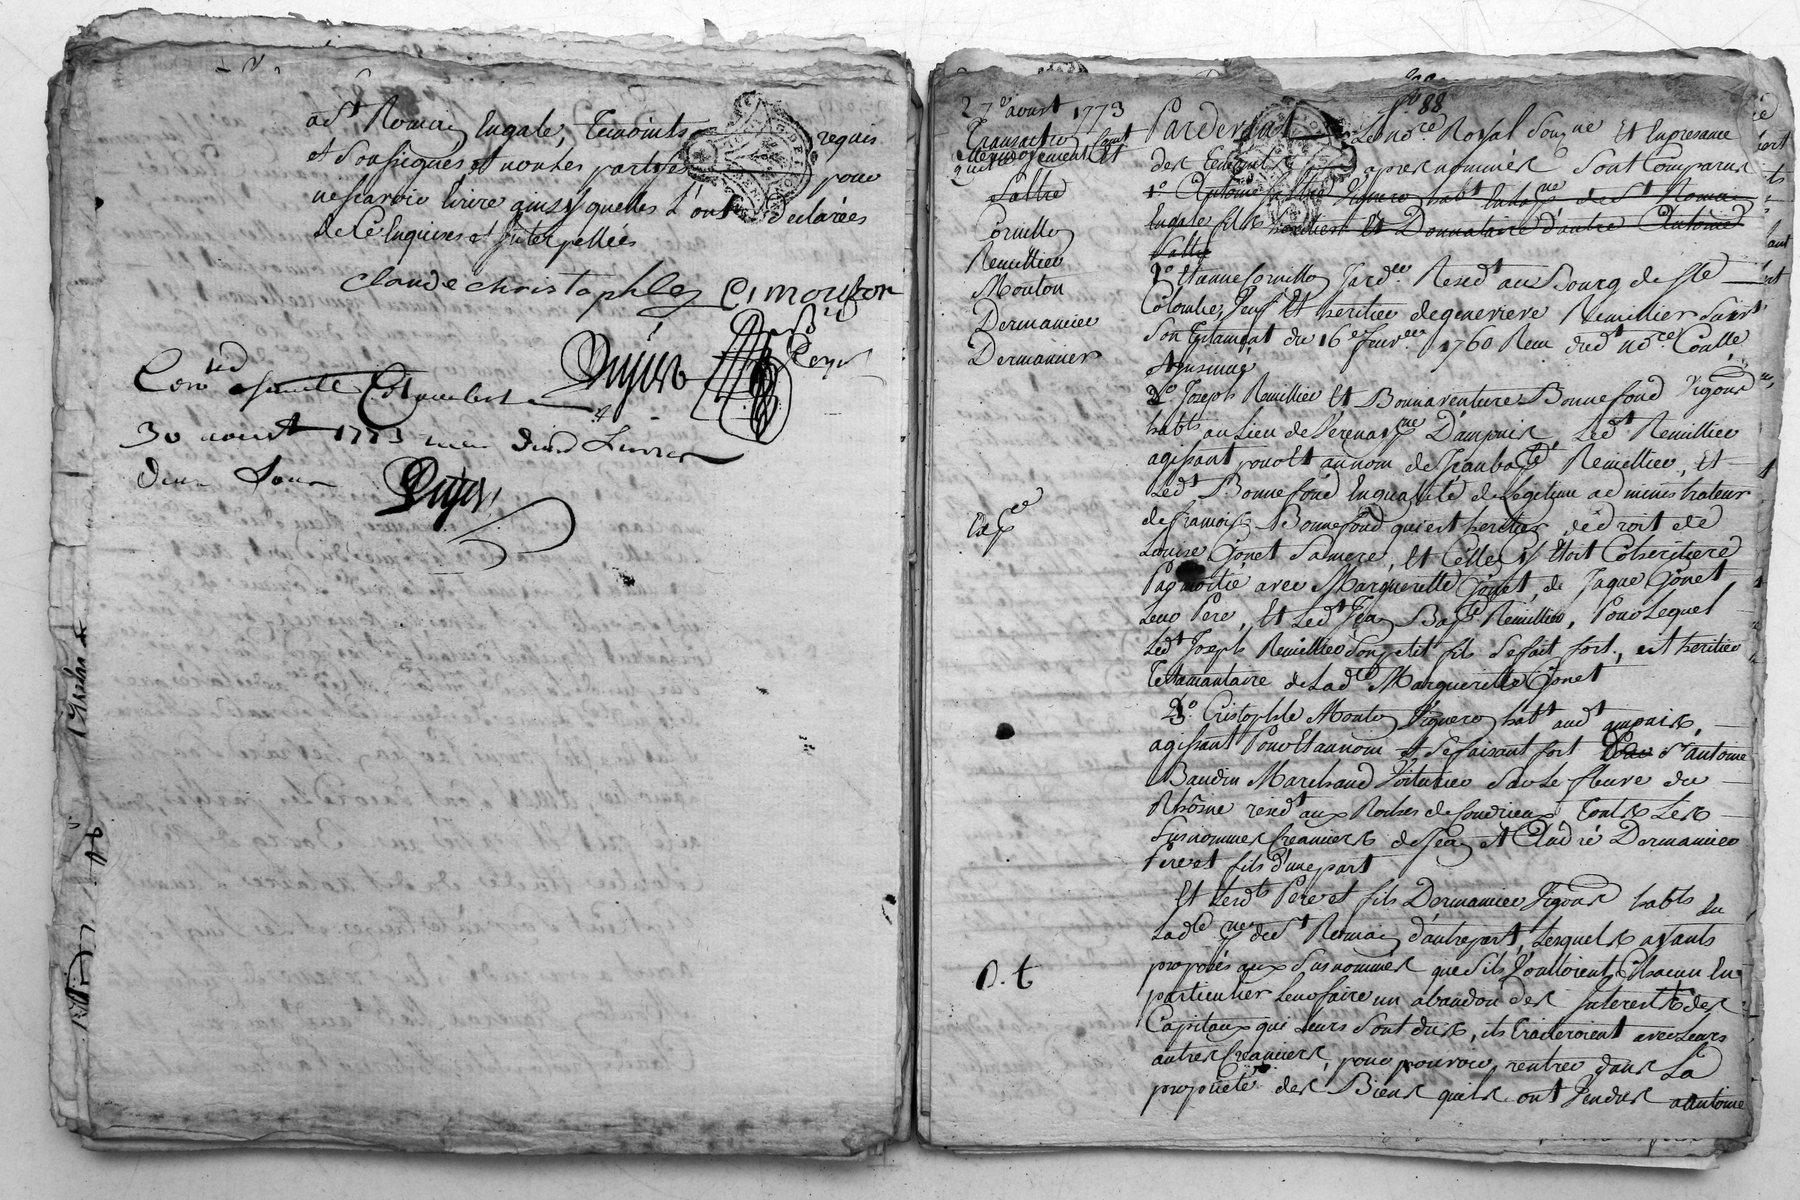 adt Romain Engale, Temoints requis
et Soussignés et non les partyes pour
ne scavoir Ecrire ainsy quelles l'ont declarées
de Ce Enquises et Interpellées
Claude christophle C. mouton
Dujer
Con led a Sainte Colombe Le
30 aoust 1773 Livres
Deux Sour
Dujer
fo 88
27e aoust 1773
Transactio
quit
Sallre
Cornillon
Remillieu
Mouton
Dermanieu
Dermanieu
Exp ée
D. t
Pardevant Le nore Royal Souz.ne Et En presance
des Temoins apres nommés Sont Comparus
1o Antoine Sallre Vigneron habt En la pse de St Romain
Engale fils heritier Et Donnataire d'autre Antoine
Sallre
1o Etienne Cornillon Jardr Resedt au Bourg de Ste
Colombe, Veuf Et heritier de genevieve Remillier Suivt
Son testament du 16e Janvier 1760 Receu dudt nore Coulle
Et Insinué
2o Joseph Remillieu Et Bonnaventure Bonnefond Vigons
habts au Lieu de Verenay pse D'ampuis, Ledt Remillieu
agissant pour Et au nom de Jean bapte Remillieu, Et
Ledt Bonnefond En qualité de Legitime administrateur
de françois Bonnefond qui est heritier de droit de
Louise Gonet Sa mere, Et Celle cy Etoit Coheritiere
Par moitié avec Marguerite Gonet, de Jaque Gonet
Leur Pere, Et Ledt Jean Bapte Remillieu, Pour Lequel
Ledt Joseph Remillieu Son petit fils Se fait fort, est heritier
Testamantaire de Lade Marguerite Gonet
3o Cristophle Mouton Vigneron habt audt ampuis,
agissant Pour Et au nom et Se faisant fort de Sr antoine
Baudin Marchand Voiturier Sur Le fleuve du
Rhône resedt aux Roches de Condrieux, Tous Les
Susnommés Creanciers de Jean et André Dermanieu
Pere et fils d'une part
Et Lesdts Pere et fils Dermanieu Vigons habts En
Lade pse de St Romain d'autre part, Lesquels ayants
proposés aux Susnommés que S'ils Vouloient Chacun En
particulier Leur faire un abandon des Interests des
Capitaux qui Leurs Sont dus, ils traiteroient avec Leurs
autres Creanciers, pour pouvoir rentrer dans La
propriété des Biens quils ont Vendus a antoine